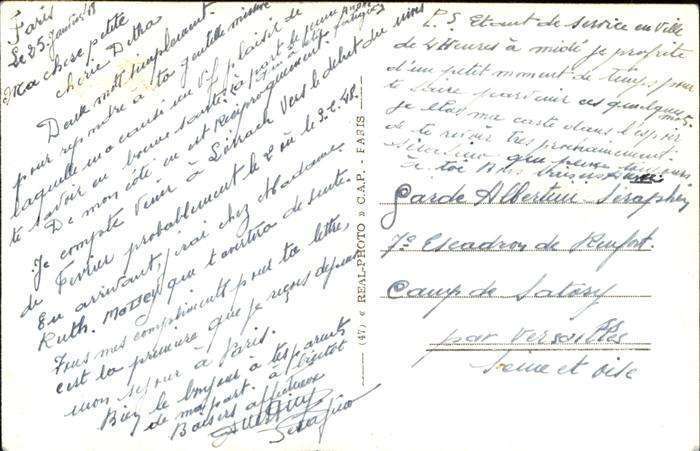 Paris
Le 25 Janvier 48
Ma chère petite
chérie Ditha
Deux mots simplement
pour repondre à ta gentille missive
laquelle ma causé un vif plaisir de
te savoir en bonne santé
De mon côté en est Reciproquement.
Je compte venir à Lörrach vers le debut du mois
de Fevrier probablement le 2 où le 3.2.48.
En arrivant j'irai chez Madame
Ruth. qui t'avertira de suite.
Tous mes compliments pour ta lettre,
c'est la première que je reçois depuis
mon sejour à Paris.
Bien le bonjour à tes parents
de ma part. à bientôt
Baisers affectueux
Albertini
Serafino
(47) « REAL-PHOTO » C.A.P. PARIS
P.S. Etant de service en Ville
de 4 Heures à midi je profite
d'un petit moment de temps pour
te faire parvenir ces quelques mots.
ma carte dans l'espoir
de te revoir très prochainement.
Serafino qui pense toujours
à toi
Garde Albertini Séraphin
7e Escadron de Renfort.
Camp de Satory
par Versailles
Seine et Oise